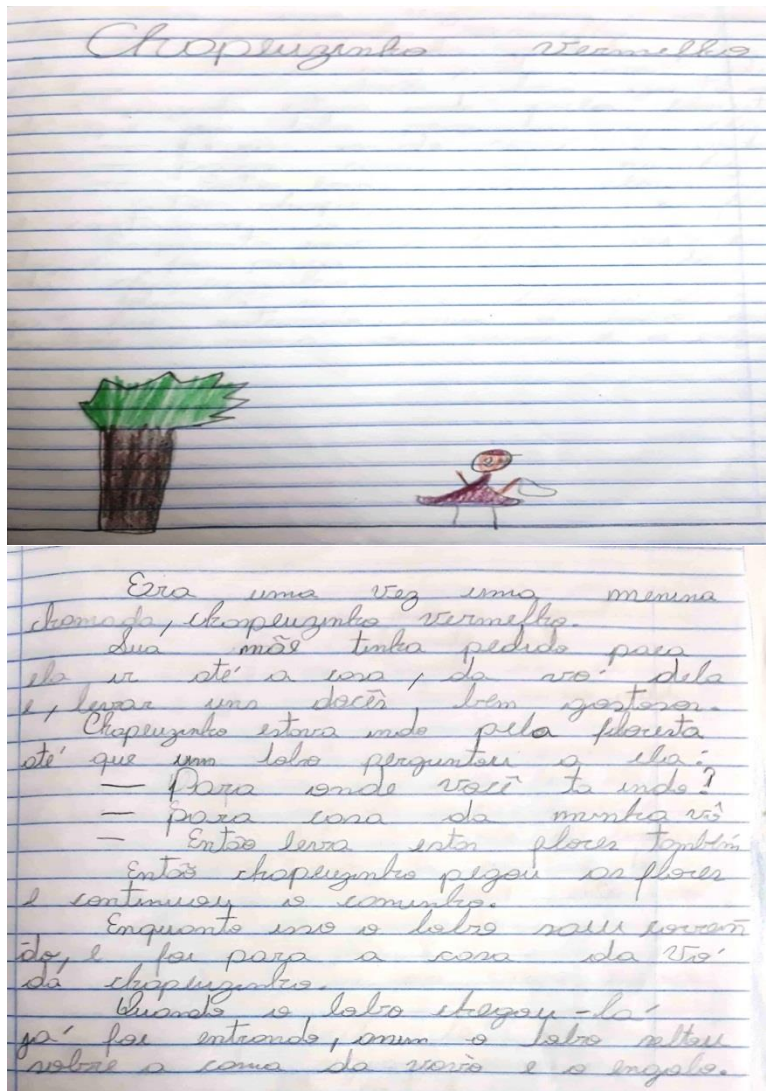 Chapeuzinho vermelho
Era uma vez uma menina
chamada, chapeuzinho vermelho.
Sua mãe tinha pedido para
ela ir até a casa, da vó dela
e, levar uns docês, bem gostosos.
Chapeuzinho estava indo pela floresta
até que um lobo perguntou a ela:
— Para onde você ta indo?
— para casa da minha vó
— Então leva estas flores também
Então chapeuzinho pegou as flores
e continuou o caminho.
Enquanto isso o lobo saiu corren
do, e foi para a casa da vó
da chapeuzinho.
Quando o lobo chegou-lá
já foi entrando, assim o lobo saltou
sobre a cama da vovó e o engolo.